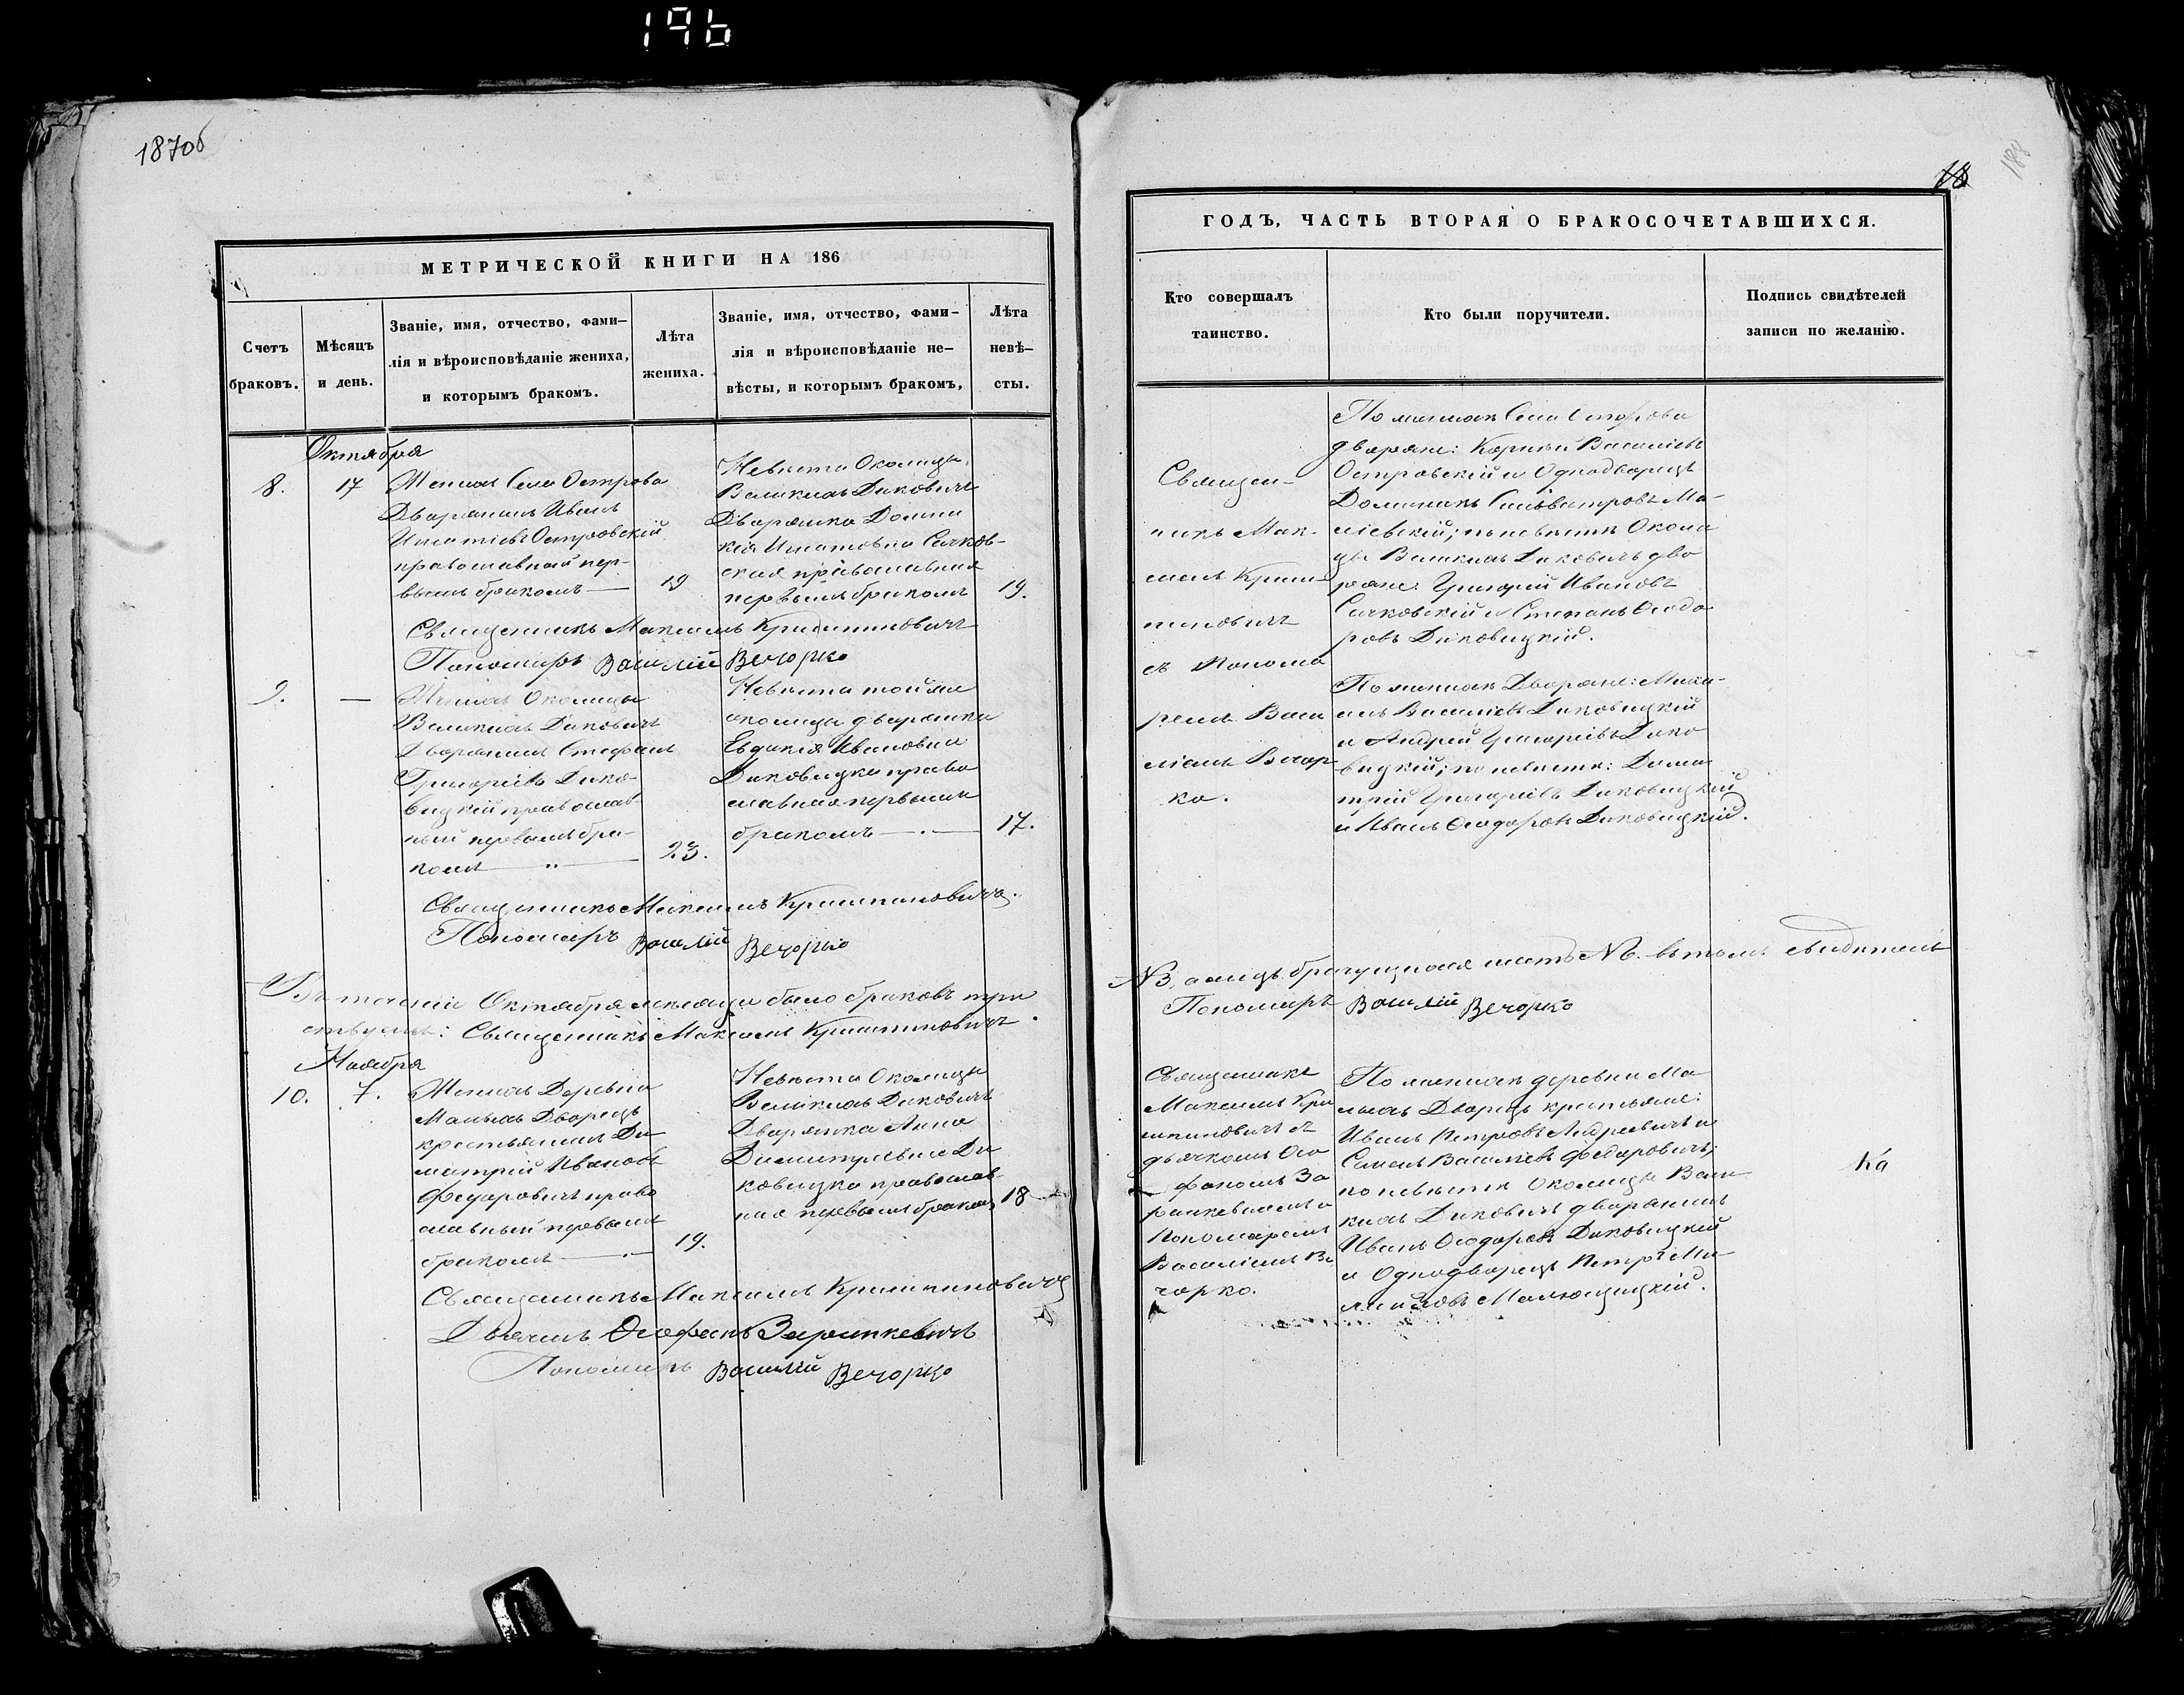 196
187об
18
188
МЕТРИЧЕСКОЙ КНИГИ НА 186
Счетъ браковъ.
Мѣсяцъ и день.
Званіе, имя, отчество, фами-
лія и вѣроисповѣданіе жениха,
и которымъ бракомъ.
Лѣта
жениха.
Званіе, имя, отчество, фами-
лія и вѣроисповѣданіе не-
вѣсты, и которымъ бракомъ,
Лѣта
невѣ-
сты.
Октября
8.
17
Женихъ Села Острова
Дворянинъ Иванъ
Игнатіевъ Островскій
православный пер-
вымъ бракомъ
19
Невѣста Околицы
Великихъ Диковичъ
Дворянка Домни
кія Игнатовна Сачков-
ская православная
первымъ бракомъ
19.
Священникъ Максимъ Криштиновичъ
Пономарь Василій Вечорко
9.
—
Женихъ Околицы
Великихъ Диковичъ
Дворянинъ Стефанъ
Григоріевъ Дико-
вицкій православ-
ный первымъ бра-
комъ
23.
Невѣста той же
околицы дворянка
Евдокія Ивановна
Диковицка право
славная первымъ
бракомъ
17.
Священникъ Максимъ Криштиновичъ.
Пономарь Василій Вечорко
Въ теченіи Октября мѣсяца было браковъ три
Священникъ Максимъ Криштиновичъ.
Ноября
10.
7.
Женихъ Деревни
Малыхъ Дворецъ
крестьянинъ Ди
митрій Ивановъ
Федаровичъ право
славный первымъ
бракомъ
19.
Невѣста Околицы
Великихъ Диковичъ
Дворянка Анна
Димитріевна Ди
ковицка православ
ная первымъ бракомъ
18
Священникъ Максимъ Криштиновичъ
Дьячекъ Ѳеофанъ Заранкевичъ
Пономарь Василій Вечорко
ГОДЪ, ЧАСТЬ ВТОРАЯ О БРАКОСОЧЕТАВШИХСЯ.
Кто совершалъ
таинство.
Кто были поручители.
Подпись свидѣтелей
записи по желанію.
Священ-
никъ Мак-
симъ Кришти-
пиновичъ
съ Понома
ремъ Васи
ліемъ Вечор
ко.
По женихѣ Села Острова
дворяне: Корнилій Василіевъ
Островскій и Однодворецъ
Доминикъ Сильвестровъ Ма-
ліевскій; по невѣстѣ Околи
цы Великихъ Диковичъ дво
ряне: Григорій Ивановъ
Сачковскій и Степанъ Ѳеодо
ровъ Диковицкій.
По женихѣ Дворяне: Миха-
илъ Василіевъ Диковицкій
и Андрей Григоріевъ Дико
вицкій; по невѣстѣ: Дими
трій Григоріевъ Диковицкій
и Иванъ Ѳеодоровъ Диковицкій.
Пономарь Василій Вечорко
Священникъ
Максимъ Кри
штиновичъ съ
дьячкомъ Ѳео
фаномъ За
ранкевичемъ и
Пономаремъ
Василіемъ Ве
чорко.
По женихѣ деревни Ма-
лыхъ Дворецъ крестьяне:
Иванъ Петровъ Андреевичъ и
Семенъ Василіевъ Федаровичъ;
по невѣстѣ Околицы Вели
кихъ Диковичъ дворянинъ
Иванъ Ѳеодоровъ Диковицкій
и Однодворецъ Петръ Ми
хайловъ Малющицкій.
Ка